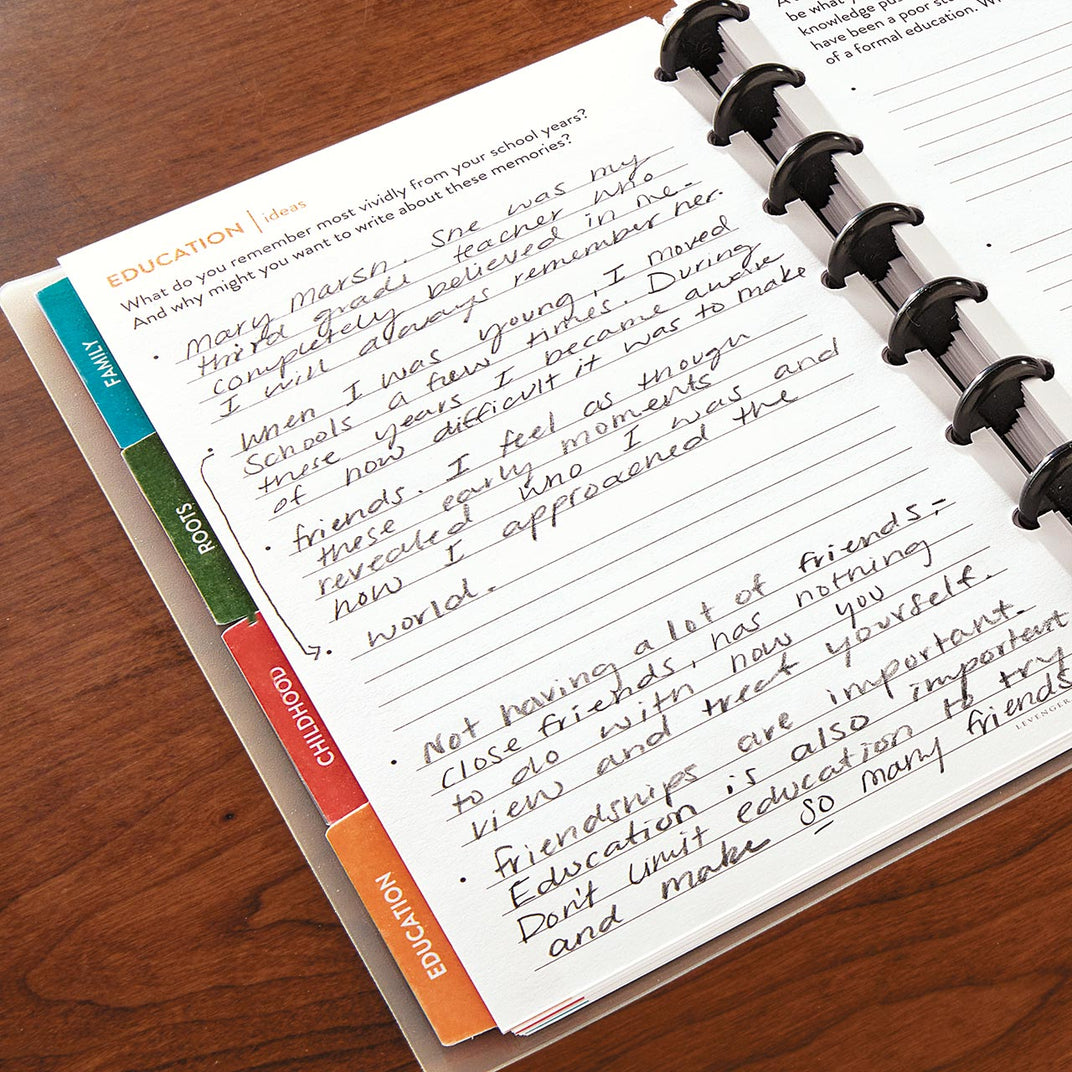 EDUCATION | ideas
What do you remember most vividly from your school years?
And why might you want to write about these memories?
• Mary Marsh. She was my
third grade teacher who
completely believed in me.
I will always remember her.
• When I was young, I moved
schools a few times. During
these years I became aware
of how difficult it was to make
• friends. I feel as though
these early moments
revealed who I was and
how I approached the
• world.
• Not having a lot of friends,
close friends, has nothing
to do with how you
view and treat yourself.
• friendships are important.
Education is also important
Don't limit education to try
and make so many friends
LEVENGER
FAMILY
ROOTS
CHILDHOOD
EDUCATION
be what
knowledge
have been a poor
of a formal education.